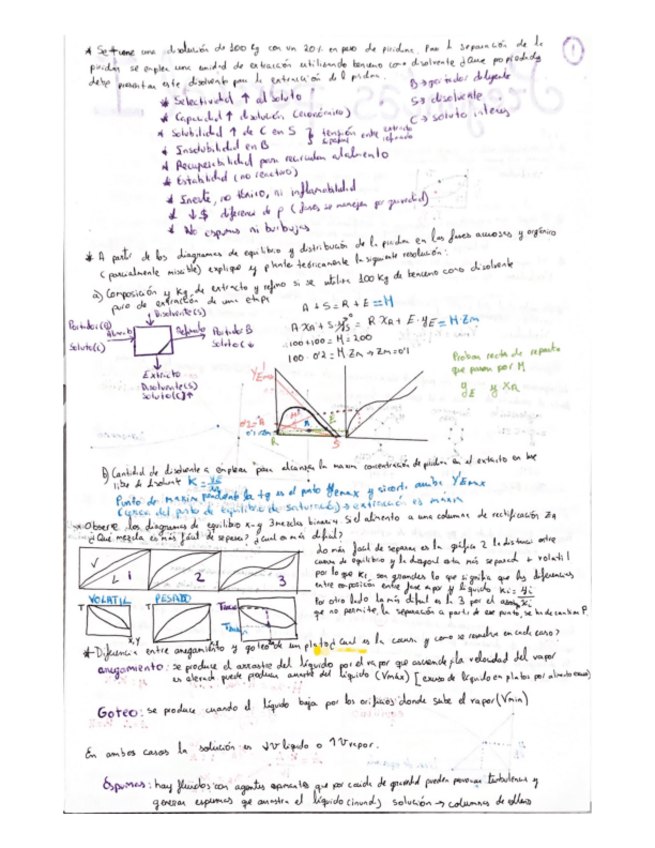 * Se tiene una disolución de 100 kg con un 20% en peso de piridina. Para la separación de la
piridina se emplea una unidad de extracción utilizando benceno como disolvente ¿Que propiedades
debe presentar este disolvente para la extracción de la piridina.
①
B → portador diluyente
S → disolvente
C → soluto interés
* Selectividad ↑ al soluto
* Capacidad ↑ disolución (económico)
* Solubilidad ↑ de C en S } tensión entre extracto
* Insolubilidad en B
* Recuperabilidad para recircular
* Estabilidad (no reactivo)
* Inerte, no tóxico, ni inflamabilidad
* ↓$ diferencia de ρ (fases se manejan por gravedad)
* No espumas ni burbujas
* A partir de los diagramas de equilibrio y distribución de la piridina en las fases acuosas y orgánica
(parcialmente miscible) explique y plantee teóricamente la siguiente resolución:
a) Composición y kg de extracto y refino si se utilizan 100 kg de benceno como disolvente
puro de extracción de una etapa
A + S = R + E = M
Disolvente(s)
Portador(B)
Soluto(C)
Refinado
Portador B
Soluto C↓
Extracto
Disolvente(s)
Soluto(C)↑
100+100 = M = 200
100·0'2 = M Zm → Zm = 0'1
Probar recta de reparto
que pasan por M
yE y xR
YE
R
S
b) Cantidad de disolvente a emplear para alcanzar la maxima concentración de piridina en el extracto en base
libre de disolvente K =
Punto de maxima pendiente la tg es el punto yEmax y si corto arriba YEmax
(curva del punto de equilibrio de saturado) → extracción es máxima
Observe los diagramas de equilibrio x-y 3 mezclas binarias. Si el alimento a una columna de rectificación ZA
¿Qué mezcla es más fácil de separar? ¿cual es más dificil?
V
L 1
2
3
VOLATIL
PESADO
T
T
x,y
La más facil de separar es la gráfica 2 la distancia entre
curva de equilibrio y la diagonal esta más separada + volatil
por lo que Ki son grandes lo que significa que las diferencias
entre composición entre fase vapor y líquido
Por otro lado la más dificil es la 3 por el
que no permite la separación a partir de ese punto, se ha de cambiar P.
* Diferencia entre anegamiento y goteo de un plato ¿Cual es la causa y como se resuelve en cada caso?
anegamiento: se produce el arrastre del líquido por el vapor que asciende / la velocidad del vapor
es elevada puede producir arrastre del líquido (Vmáx) [exceso de líquido en platos
Goteo: se produce cuando el líquido baja por los orificios donde sube el vapor (Vmin)
En ambos casos la solución es ↓V líquido o ↑V vapor.
Espumas: hay fluidos con agentes espumantes que por caida de gravedad pueden provocar turbulencia y
generar espumas que arrastra el líquido (inund) solución → columnas de relleno